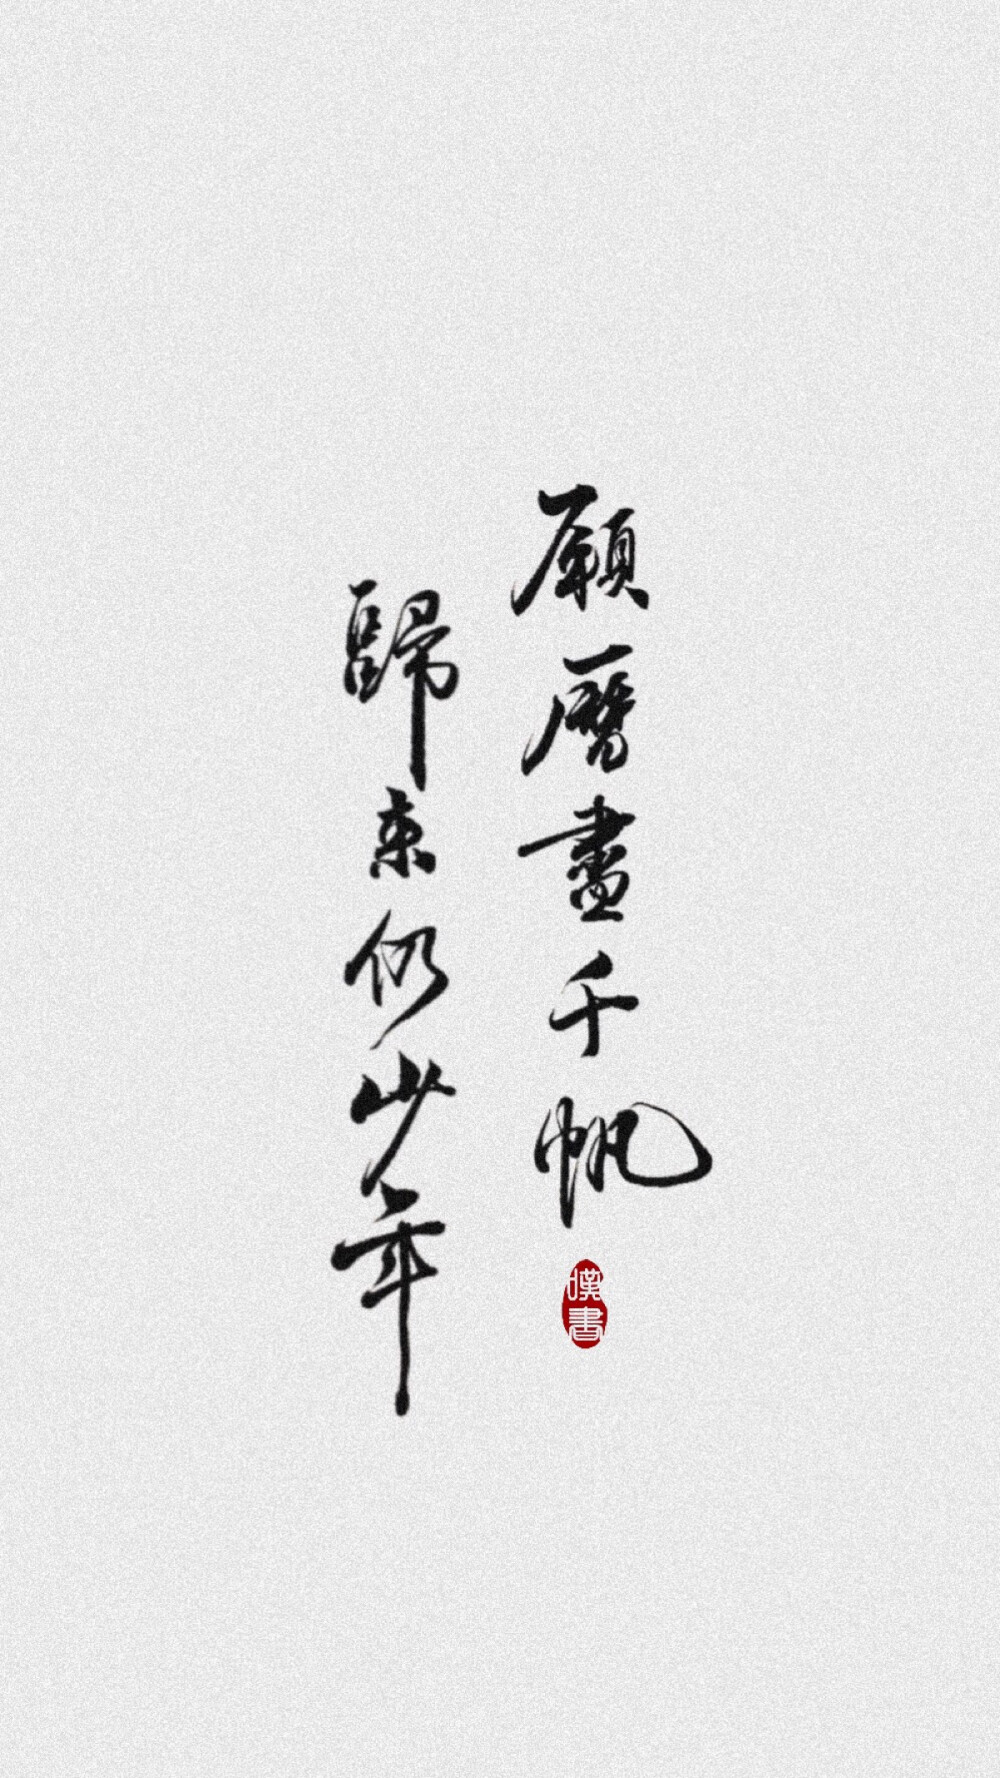 願曆盡千帆
歸來仍少年
嘆書